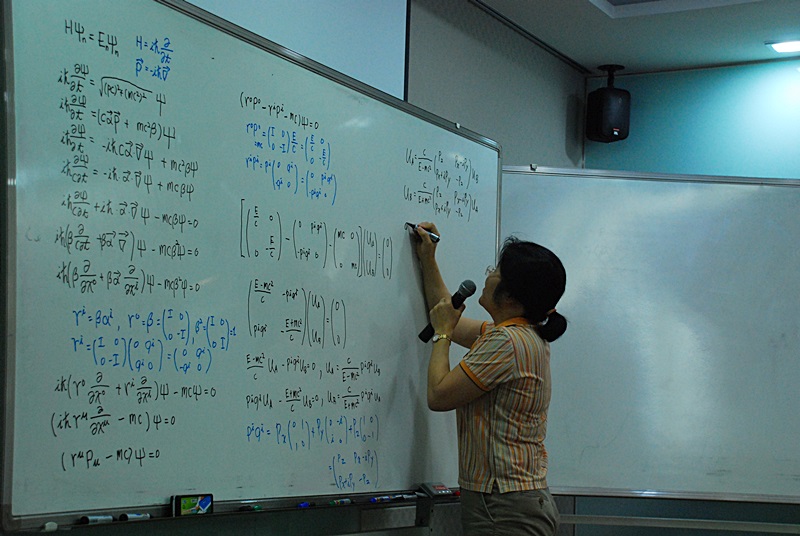 Hψₙ = Eₙψₙ
H = iħ ∂/∂t
p⃗ = -iħ∇⃗
iħ ∂ψ/∂t = √((pc)²+(mc²)²) ψ
iħ ∂ψ/∂t = (cα⃗·p⃗ + mc²β)ψ
iħ ∂ψ/∂t = -iħcα⃗·∇⃗ψ + mc²βψ
iħ ∂ψ/c∂t = -iħ·α⃗·∇⃗ψ + mcβψ
iħ ∂ψ/c∂t + iħ·α⃗·∇⃗ψ - mcβψ = 0
iħ(β ∂/c∂t + βα⃗·∇⃗)ψ - mcβ²ψ = 0
iħ(β ∂/∂x⁰ + βα⃗ ∂/∂xⁱ)ψ - mcβ²ψ = 0
γⁱ = βαⁱ, γ⁰ = β = (I 0 / 0 -I), β² = (I 0 / 0 I) = 1
γⁱ = (I 0 / 0 -I)(0 σⁱ / σⁱ 0) = (0 σⁱ / -σⁱ 0)
iħ(γ⁰ ∂/∂x⁰ + γⁱ ∂/∂xⁱ)ψ - mcψ = 0
(iħγᵘ ∂/∂xᵘ - mc)ψ = 0
(γᵘPᵤ - mc)ψ = 0
(γ⁰p⁰ - γⁱpⁱ - mc)ψ = 0
γ⁰p⁰ = (I 0 / 0 -I) E/c = (E/c 0 / 0 -E/c)
γⁱpⁱ = pⁱ(0 σⁱ / -σⁱ 0) = (0 pⁱσⁱ / -pⁱσⁱ 0)
[(E/c 0 / 0 -E/c) - (0 pⁱσⁱ / -pⁱσⁱ 0) - (mc 0 / 0 mc)](U_A / U_B) = (0 / 0)
(E-mc²/c -pⁱσⁱ / pⁱσⁱ -E+mc²/c)(U_A / U_B) = (0 / 0)
E-mc²/c U_A - pⁱσⁱU_B = 0, U_A = c/E-mc² pⁱσⁱU_B
pⁱσⁱU_A - E+mc²/c U_B = 0, U_B = c/E+mc² pⁱσⁱU_A
pⁱσⁱ = Px(0 1 / 1 0) + Py(0 -i / i 0) + Pz(1 0 / 0 -1)
= (Pz Px-iPy / Px+iPy -Pz)
U_A = c/E-mc² (Pz Px-iPy / Px+iPy -Pz) U_B
U_B = c/E+mc² (Pz Px-iPy / Px+iPy -Pz) U_A